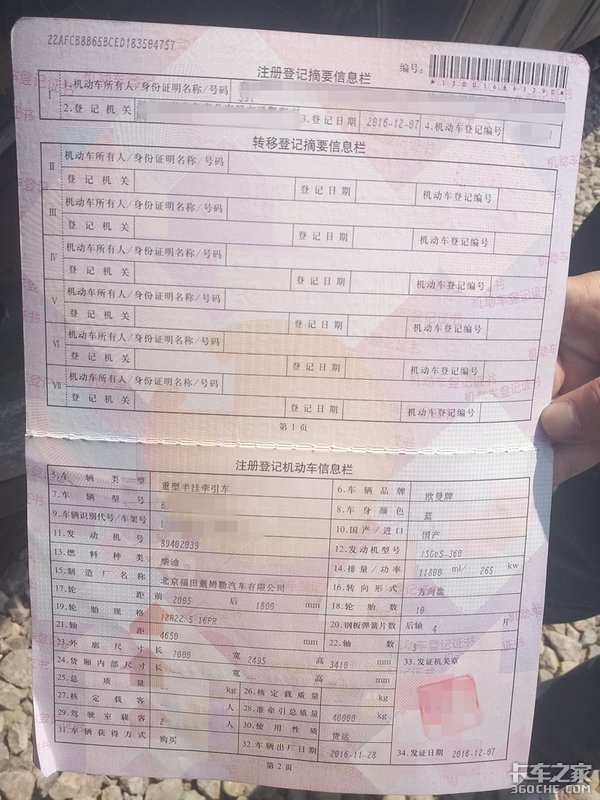 22AFCB8B65BCED183504757
注册登记摘要信息栏
编号:
I 1.机动车所有人/身份证明名称/号码
2.登记机关 3.登记日期 2016-12-07 4.机动车登记编号
转移登记摘要信息栏
II 机动车所有人/身份证明名称/号码
登记机关 登记日期 机动车登记编号
III 机动车所有人/身份证明名称/号码
登记机关 登记日期 机动车登记编号
IV 机动车所有人/身份证明名称/号码
登记机关 登记日期 机动车登记编号
V 机动车所有人/身份证明名称/号码
登记机关 登记日期 机动车登记编号
VI 机动车所有人/身份证明名称/号码
登记机关 登记日期 机动车登记编号
VII 机动车所有人/身份证明名称/号码
登记机关 登记日期 机动车登记编号
第1页
注册登记机动车信息栏
5.车辆类型 重型半挂牵引车 6.车辆品牌 欧曼牌
7.车辆型号 B 8.车身颜色 蓝
9.车辆识别代号/车架号 L 10.国产/进口 国产
11.发动机号 89402039 12.发动机型号 ISGe5-360
13.燃料种类 柴油 14.排量/功率 11800 ml/ 265 kw
15.制造厂名称 北京福田戴姆勒汽车有限公司 16.转向形式 方向盘
17.轮距 前 2005 后 1800 mm 18.轮胎数 10
19.轮胎规格 12R22.5 16PR 20.钢板弹簧片数 后轴 4 片
21.轴距 4650 mm 22.轴数 3
23.外廓尺寸 长 7000 宽 2495 高 3410 mm 33.发证机关章
24.货厢内部尺寸 长 宽 高 mm
25.总质量 kg 26.核定载质量 kg
27.核定载客 人 28.准牵引总质量 40000 kg
29.驾驶室载客 2 人 30.使用性质 货运
31.车辆获得方式 购买 32.车辆出厂日期 2016-11-28 34.发证日期 2016-12-07
第2页
卡车之家
360CHE.COM